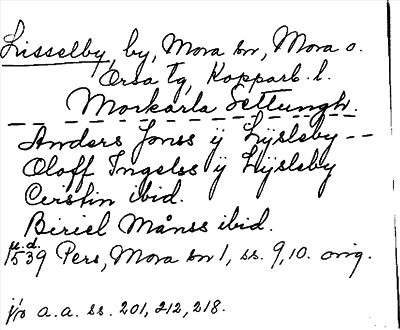 Lisselby, by, Mora sn, Mora o.
Orsa tg, Kopparb. l.
Morkarla Settungh.
Anders Jonss ÿ Lÿsleby --
Oloff Ingelss ÿ Lÿsleby
Cerstin ibid.
Biriel Månss ibid.
u.d.
1539 Pers, Mora sn 1, ss. 9, 10. orig.
jfr a.a. ss. 201, 212, 218.